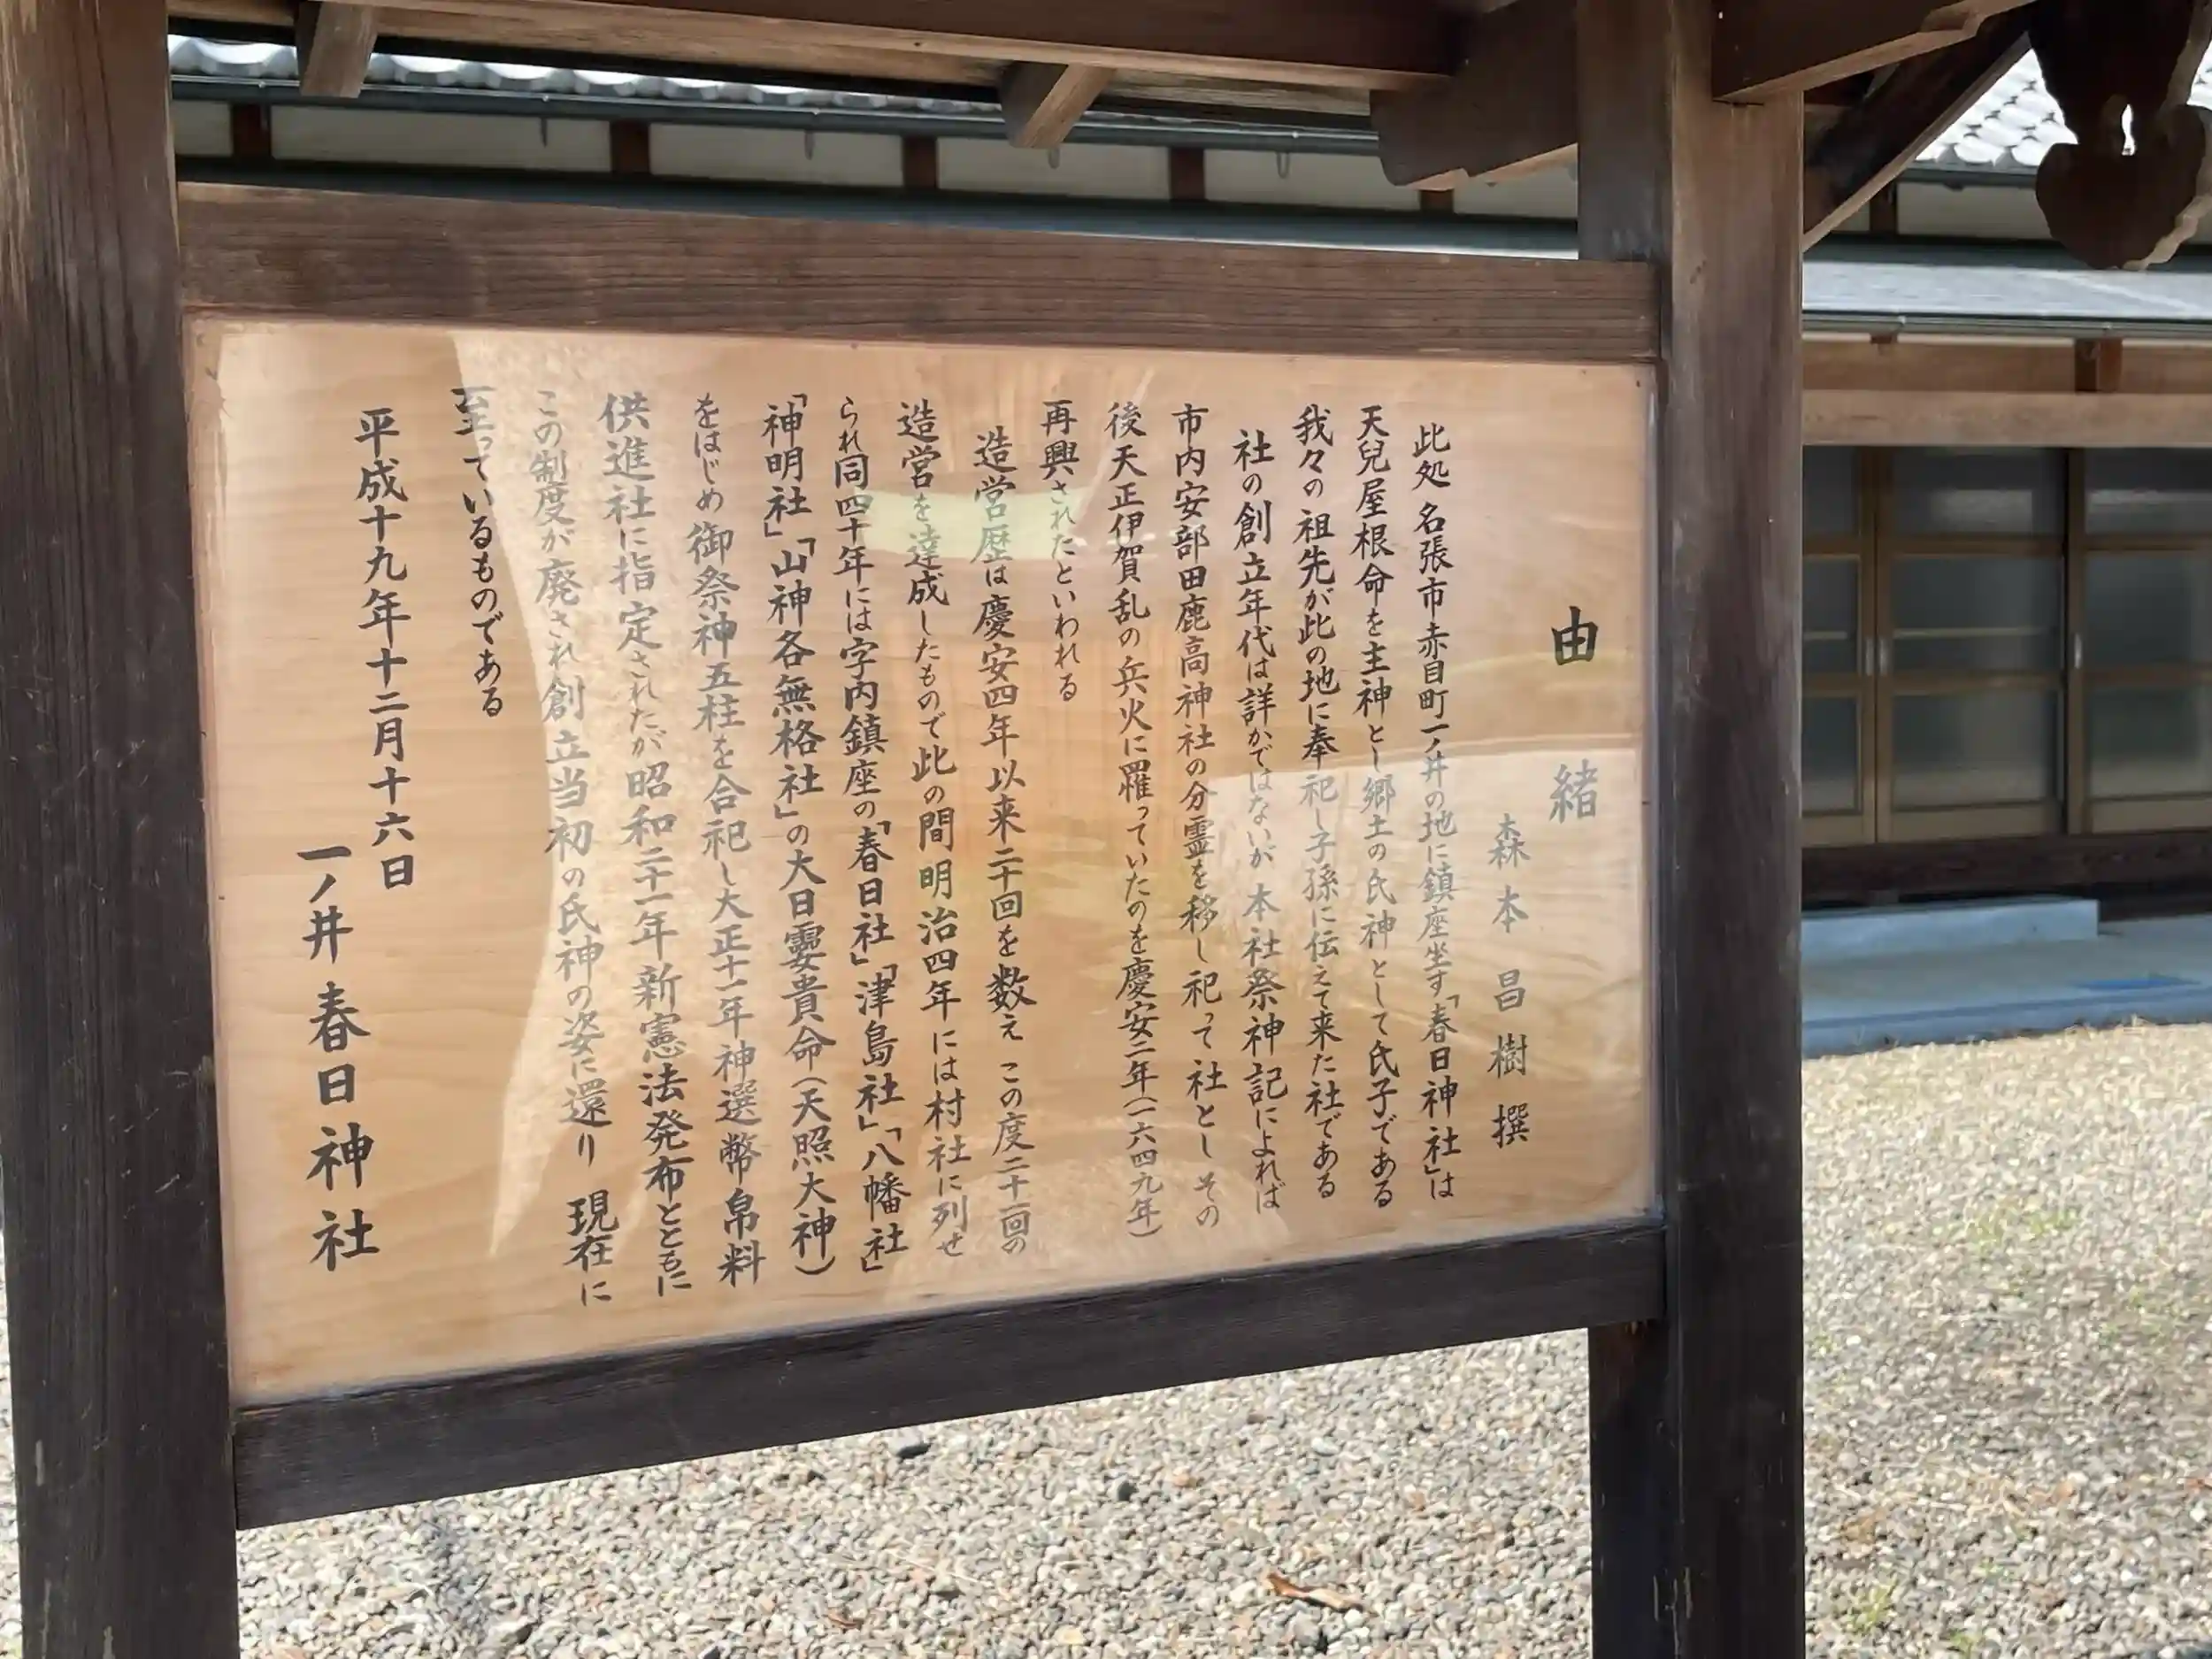 由緒
森本昌樹撰
此処名張市赤目町一ノ井の地に鎮座坐す「春日神社」は
天兒屋根命を主神とし郷土の氏神として氏子である
我々の祖先が此の地に奉祀し子孫に伝えて来た社である
社の創立年代は詳かではないが本社祭神記によれば
市内安部田鹿高神社の分霊を移し祀って社としその
後天正伊賀乱の兵火に罹っていたのを慶安二年(一六四九年)
再興されたといわれる
造営歴は慶安四年以来二十回を数えこの度二十一回の
造営を達成したもので此の間明治四年には村社に列せ
られ同四十年には字内鎮座の「春日社」「津島社」「八幡社」
「神明社」「山神各無格社」の大日孁貴命(天照大神)
をはじめ御祭神五柱を合祀し大正十一年神選幣帛料
供進社に指定されたが昭和二十一年新憲法発布とともに
この制度が廃され創立当初の氏神の姿に還り 現在に
至っているものである
平成十九年十二月十六日
一ノ井春日神社